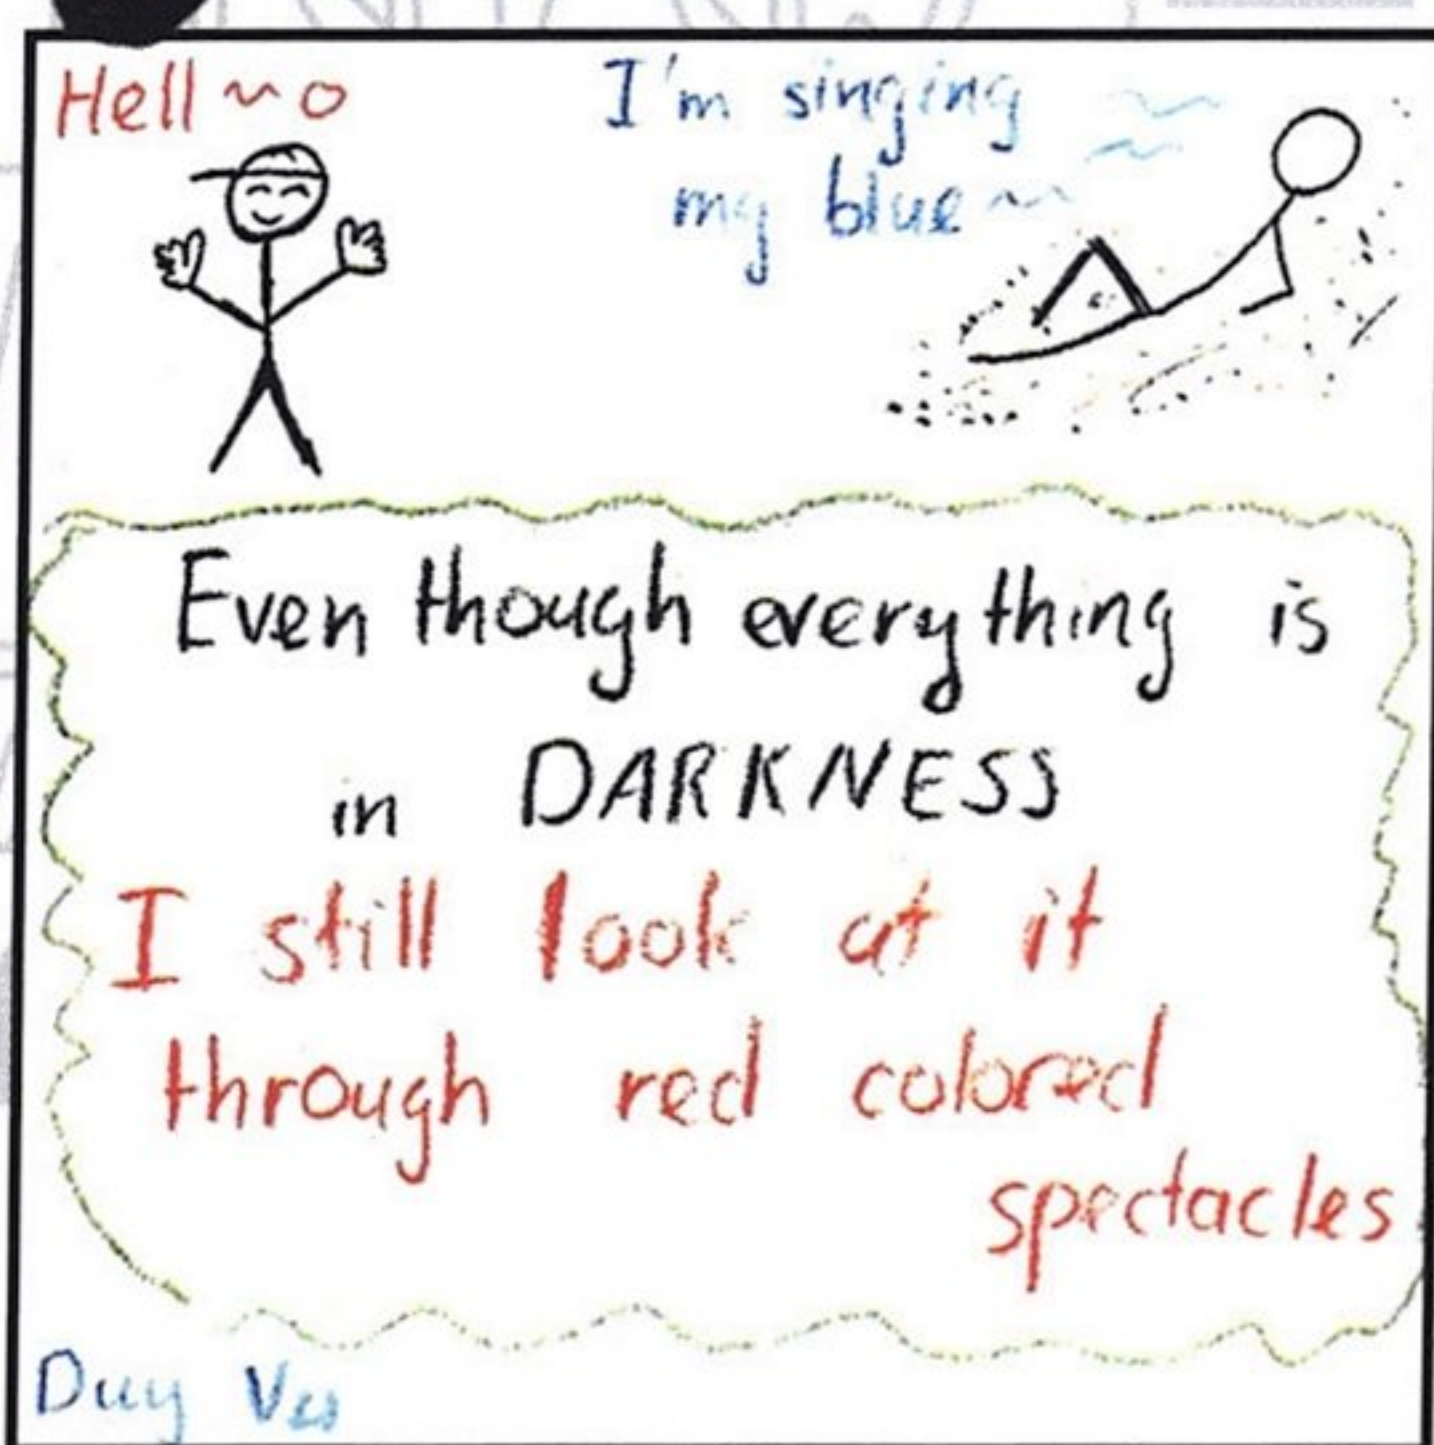 Hell~o
I'm singing
my blue~
Even though everything is
in DARKNESS
I still look at it
through red colored
spectacles
Duy